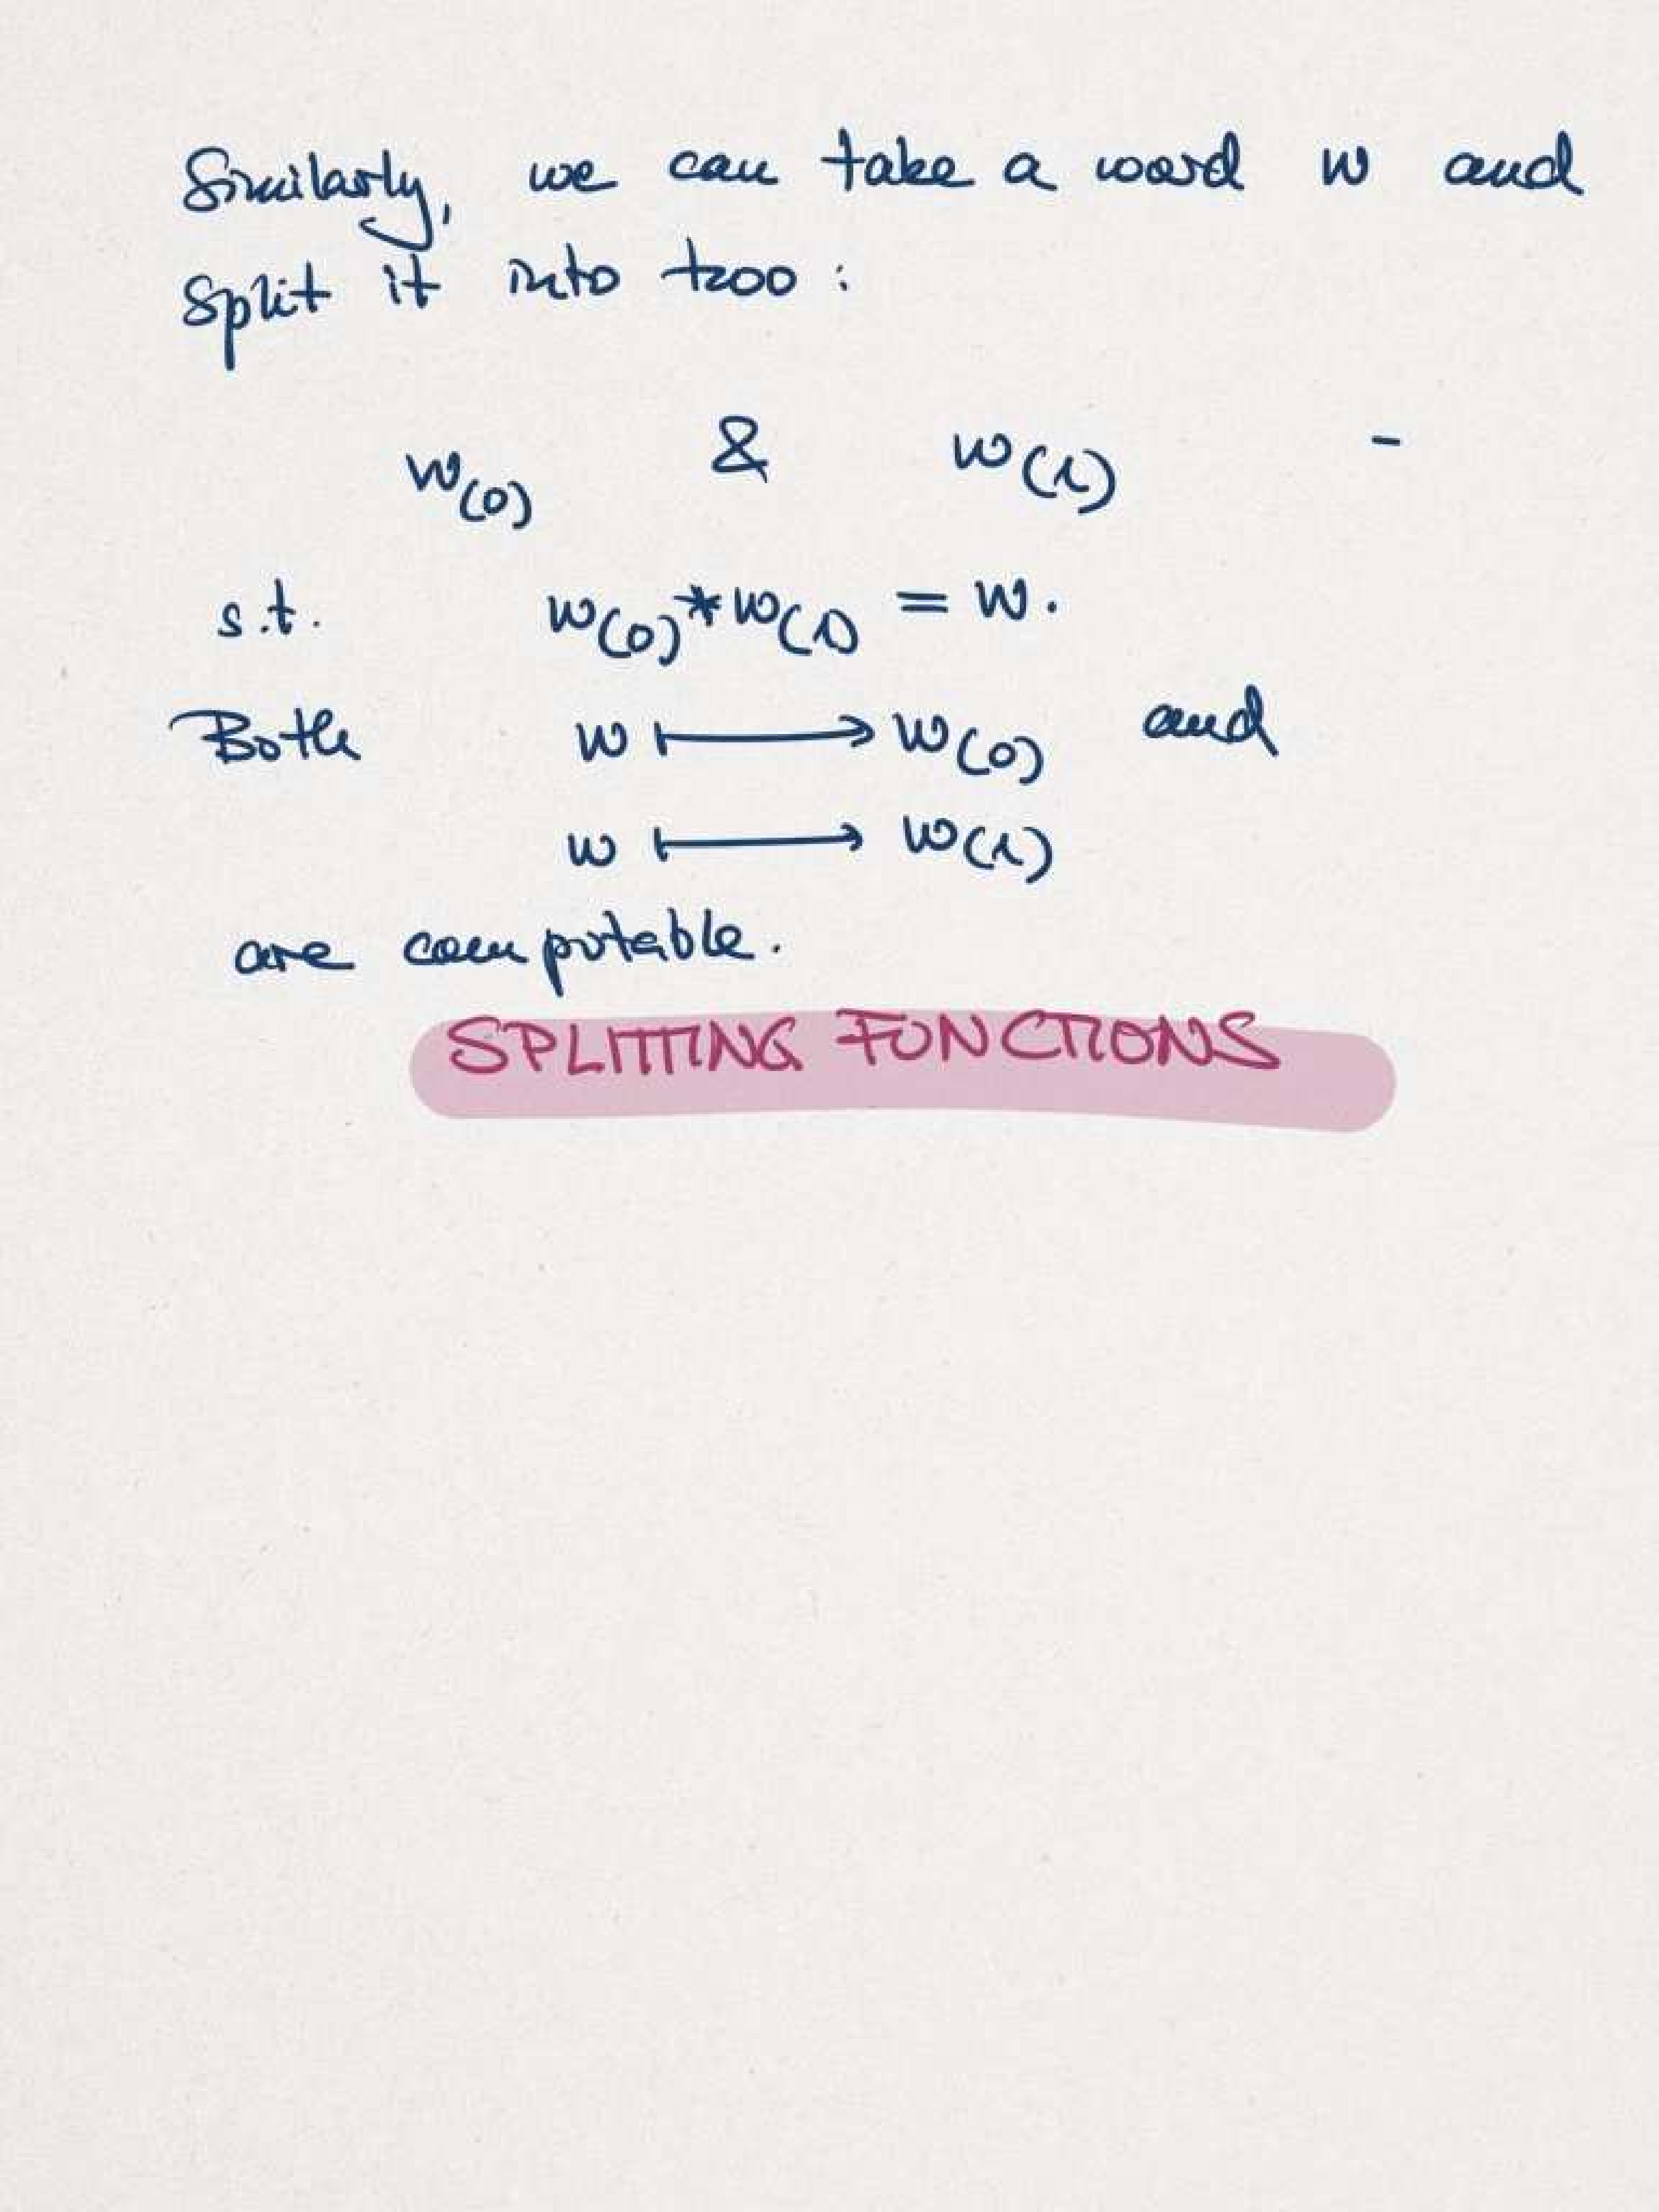 Similarly, we can take a word w and
split it into two :
w(0) & w(1) -
s.t. w(0) * w(1) = w.
Both w ↦ w(0) and
w ↦ w(1)
are computable.
SPLITTING FUNCTIONS